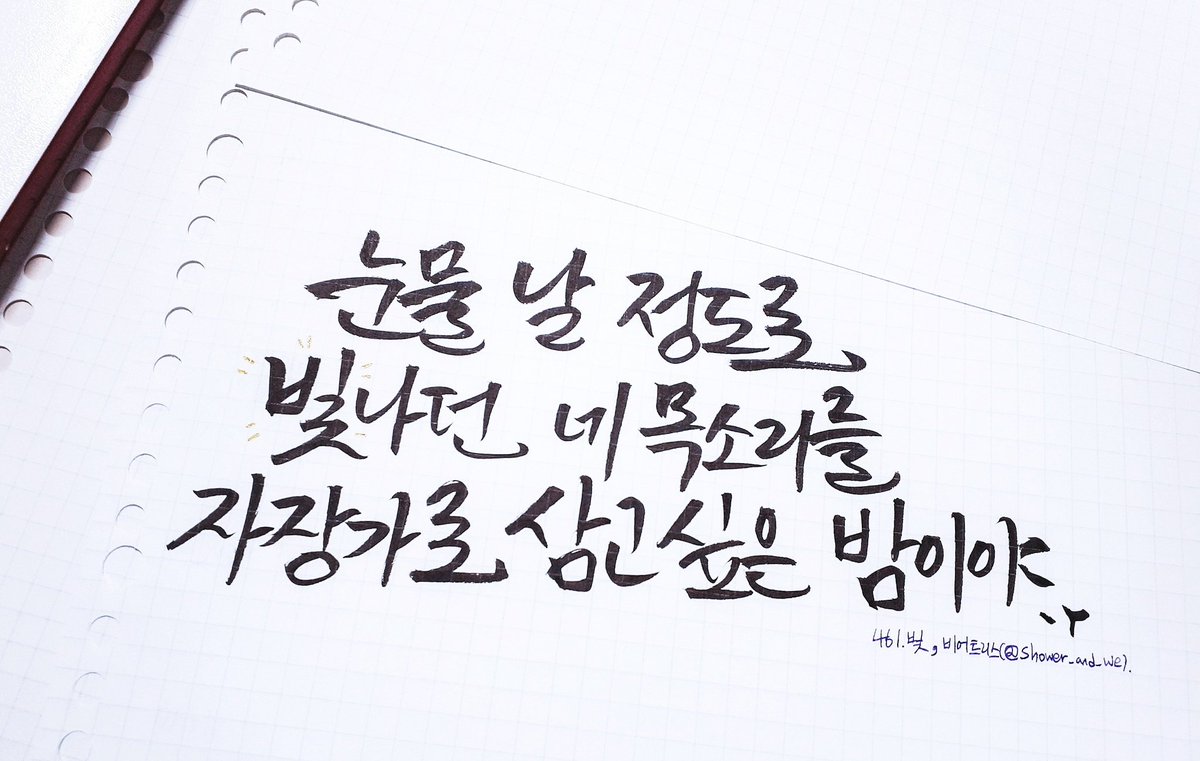 눈물 날 정도로
빛나던 네 목소리를
자장가로 삼고 싶은 밤이야
461. 빛, 비어트리스(@shower_and_we).